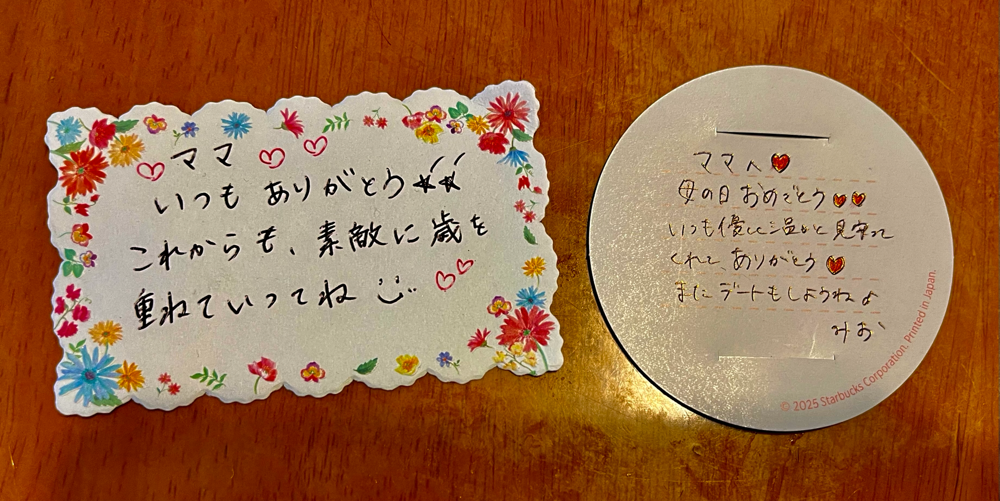 ママ
いつも ありがとう
これからも、素敵に歳を
重ねていってね
ママへ
母の日 おめでとう
いつも優しく温かく見守って
くれて、ありがとう
またデートもしようね♪
みお
© 2025 Starbucks Corporation. Printed in Japan.